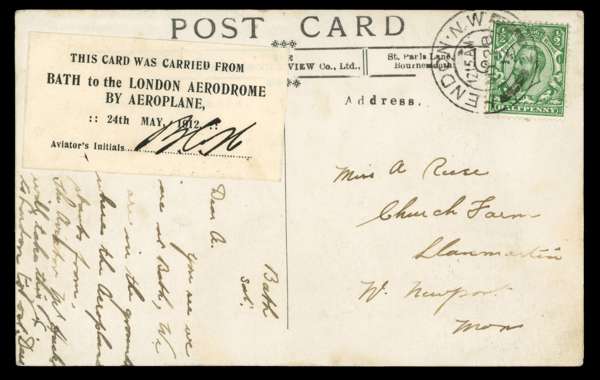 POST CARD
THIS CARD WAS CARRIED FROM
BATH to the LONDON AERODROME
BY AEROPLANE,
:: 24th MAY, 1912. ::
Aviator's Initials
VIEW Co., Ltd.,
St. Paul's Lane,
Bournemouth
Address.
HENDON. N.W.
12.15 AM
HALFPENNY
Miss A
Church Farm
Llanmartin
Nr. Newport
Mon
Bath
Sat.
Dear A.
you see we
are at Bath, We
are in the grounds
where the Aeroplane
starts from,
the Aviator Mr
will take this
to London